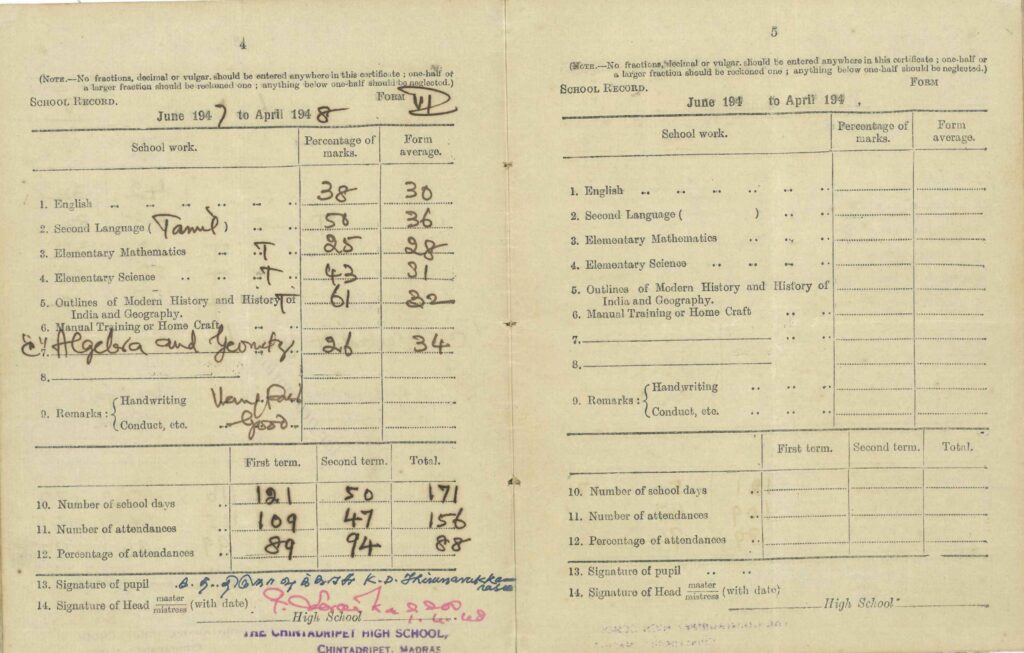 4
(NOTE.—No fractions, decimal or vulgar, should be entered anywhere in this certificate ; one-half or
a larger fraction should be reckoned one ; anything below one-half should be neglected.)
SCHOOL RECORD. FORM VI
June 1947 to April 1948
School work. Percentage of marks. Form average.
1. English .. .. .. .. .. 38 30
2. Second Language (Tamil) .. .. 50 36
3. Elementary Mathematics .. T .. 25 28
4. Elementary Science .. .. T .. 43 31
5. Outlines of Modern History and History of T 61 32
India and Geography.
6. Manual Training or Home Craft .. ..
7. Algebra and Geometry 26 34
8.
9. Remarks : { Handwriting
Conduct, etc. .. Good
First term. Second term. Total.
10. Number of school days .. 121 50 171
11. Number of attendances .. 109 47 156
12. Percentage of attendances .. 89 94 88
13. Signature of pupil K. D. Thirunavukka-
rasu
14. Signature of Head master/mistress (with date)
High School
THE CHINTADRIPET HIGH SCHOOL,
CHINTADRIPET, MADRAS
5
(NOTE.—No fractions, decimal or vulgar, should be entered anywhere in this certificate ; one-half or
a larger fraction should be reckoned one ; anything below one-half should be neglected.)
SCHOOL RECORD. FORM
June 194 to April 194 .
School work. Percentage of marks. Form average.
1. English .. .. .. .. .. ..
2. Second Language ( ) .. ..
3. Elementary Mathematics .. .. ..
4. Elementary Science .. .. .. ..
5. Outlines of Modern History and History of
India and Geography.
6. Manual Training or Home Craft .. ..
7.
8.
9. Remarks : { Handwriting .. .. ..
Conduct, etc. .. .. ..
First term. Second term. Total.
10. Number of school days ..
11. Number of attendances ..
12. Percentage of attendances ..
13. Signature of pupil .. ..
14. Signature of Head master/mistress (with date)
High School